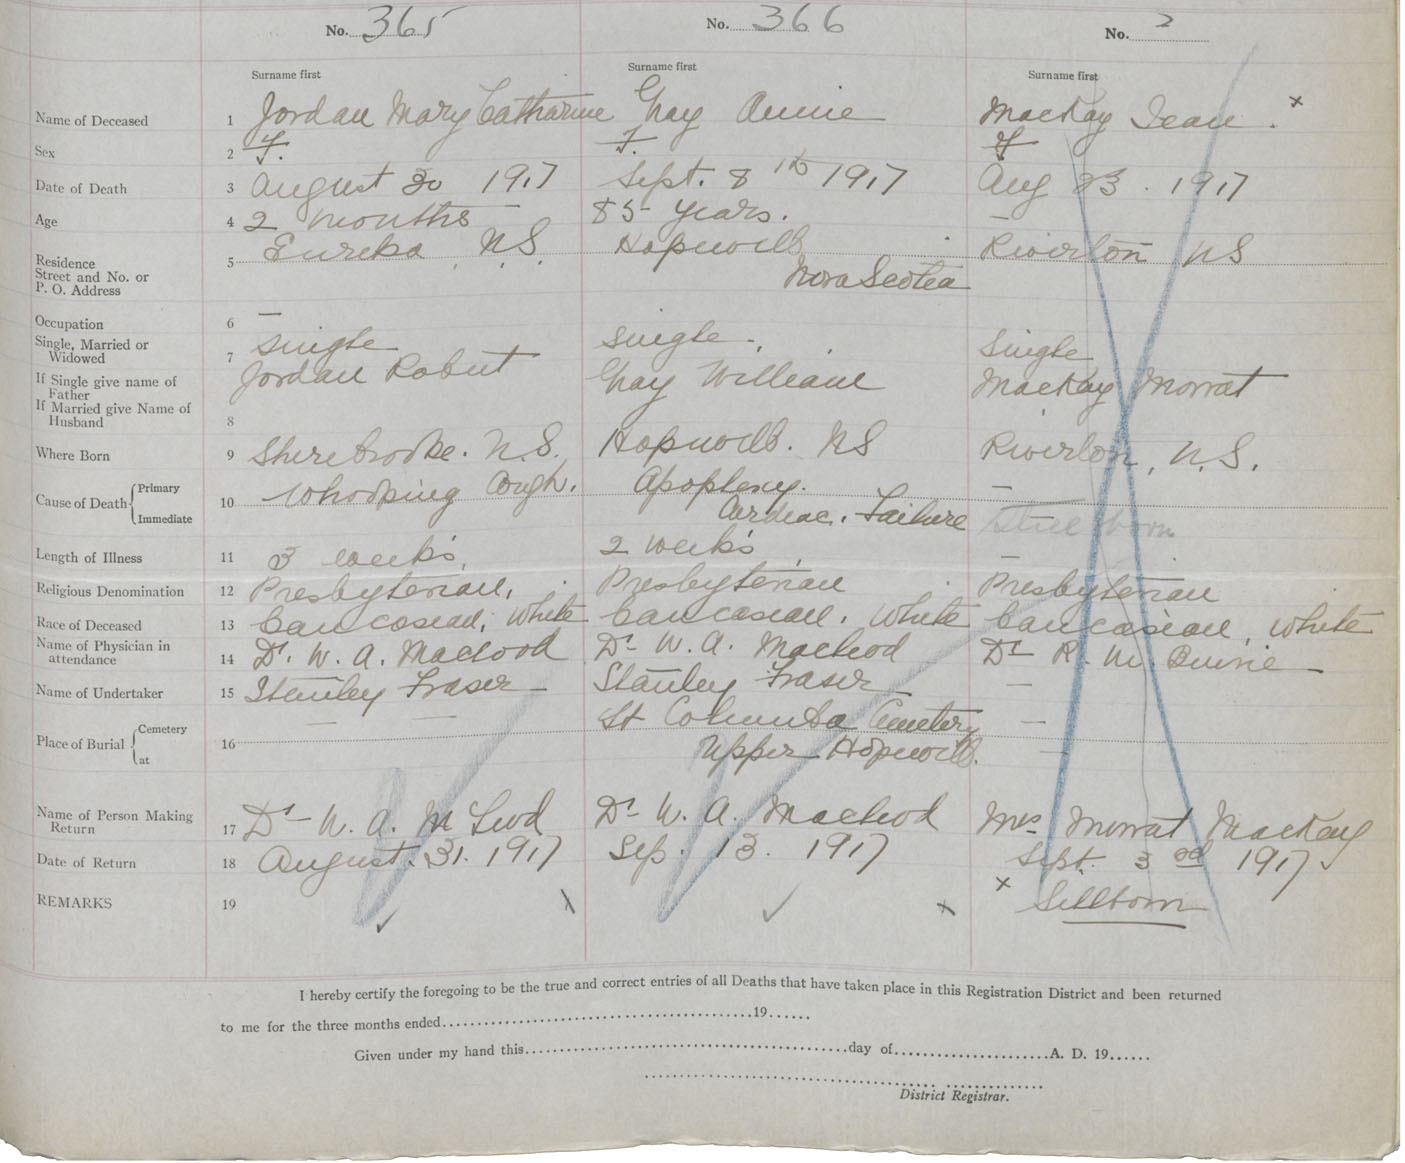 No. 365 No. 366 No. 2
Surname first Surname first Surname first
Name of Deceased 1 Jordan Mary Catharine Gray Annie MacKay Jean . x
Sex 2 F. F. F
Date of Death 3 August 30 1917 Sept. 8th 1917 Aug 23. 1917
Age 4 2 months 85 years. —
Residence
Street and No. or
P. O. Address 5 Eureka, N.S. Hopewell Riverton NS
Nova Scotia
Occupation 6 —
Single, Married or
Widowed 7 single single -. Single
If Single give name of
Father Jordan Robert Gray William MacKay Morrat
If Married give Name of
Husband 8
Where Born 9 Sherebrooke. N.S. Hopewell. NS Riverton, N.S.
Cause of Death Primary 10 Whooping Cough. Apoplexy. —
Immediate Cardiac. Failure Still born
Length of Illness 11 3 weeks. 2 weeks —
Religious Denomination 12 Presbyterian. Presbyterian Presbyterian
Race of Deceased 13 Caucasian, White Caucasian, White Caucasian, White
Name of Physician in
attendance 14 Dr. W. A. MacLeod Dr W. A. MacLeod Dr
Name of Undertaker 15 Stanley Fraser Stanley Fraser —
Place of Burial Cemetery 16 — — St Columba Cemetery —
at Upper Hopewell. —
Name of Person Making
Return 17 Dr W. A. McLeod Dr W. A. MacLeod Mrs Morrat MacKay
Date of Return 18 August. 31. 1917 Sep. 13. 1917 Sept. 3rd 1917
REMARKS 19 x Stillborn
I hereby certify the foregoing to be the true and correct entries of all Deaths that have taken place in this Registration District and been returned
to me for the three months ended..........19......
Given under my hand this..........day of..........A. D. 19......
District Registrar.